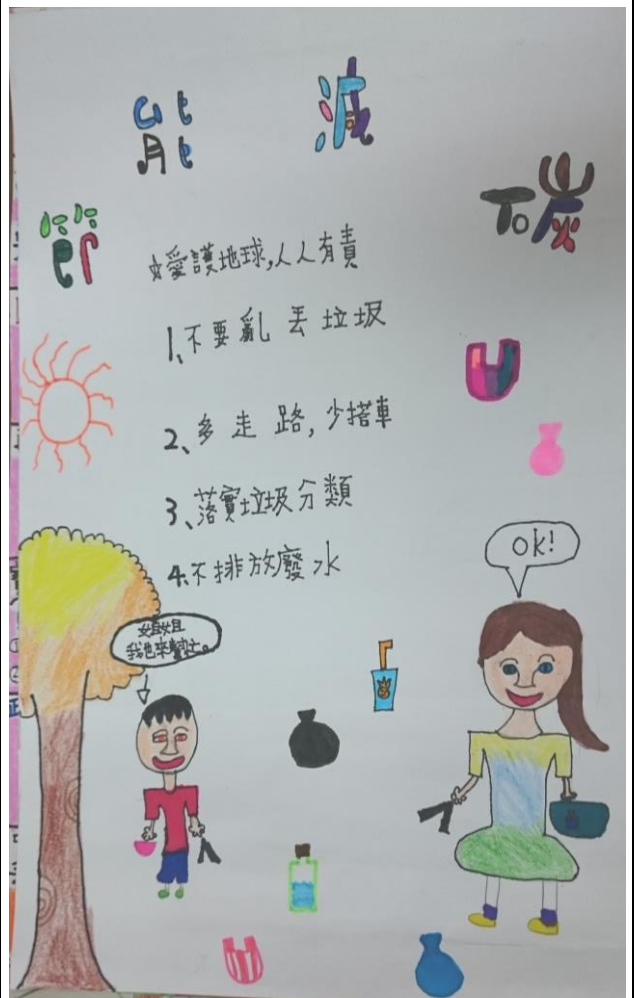 節能減碳
愛護地球,人人有責
1、不要亂丟垃圾
2、多走路,少搭車
3、落實垃圾分類
4、不排放廢水
OK!
姐姐
我也來幫忙。